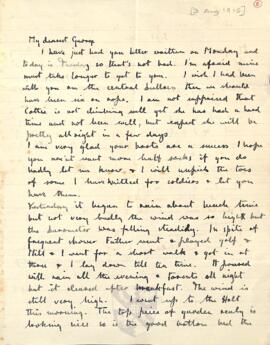 [3 Aug 1915]
My dearest George
I have just had your letter written on Monday and
today is Tuesday so that's not bad. I'm afraid mine
must take longer to get to you. I wish I had been
with you on the central buttress then we should
have been six on a rope. I am not surprised that
Cottie is not climbing well yet she has had a hard
time and not been well, but expect she will be
pretty allright in a few days.
I am very glad your boots are a success I hope
you won't want more half socks if you do
badly let me know, & I will unpick the toes
of some I have knitted for soldiers & let you
have them.
Yesterday it began to rain about lunch time
but not very badly the wind was so high but
the barometer was falling steadily. In spite of
frequent shower Father went & played golf &
Mill & I went for a short walk & got in at
three & I lay down till tea time. It poured
with rain all the evening & torents all night
but it cleared after breakfast. The wind is
still very high. I went up to the Holt
this morning. The top piece of garden really is
looking nice so is the good bottom bed the